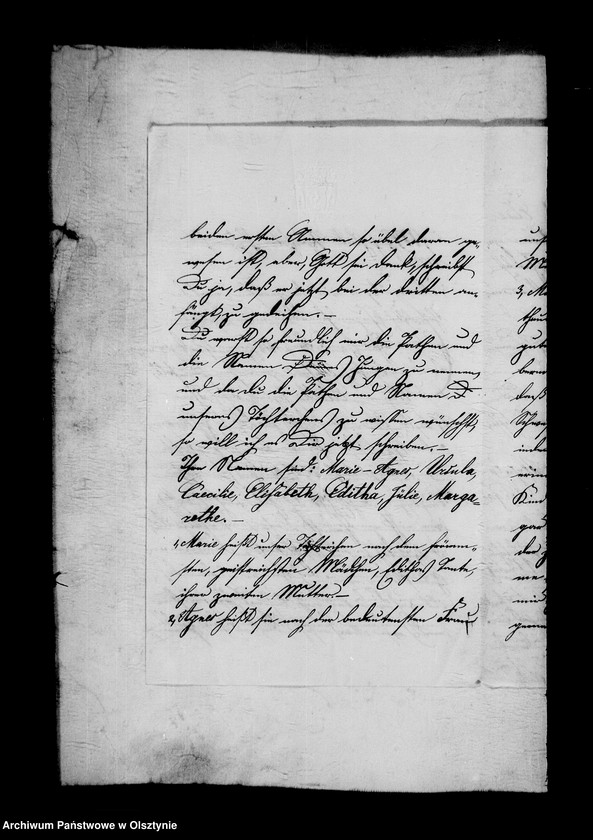 beiden ersten Ammen so übel daran ge-
wesen ist, aber, Gott sei Dank, schreibst
Du ja, daß er jetzt bei der dritten an-
fängt, zu gedeihen. —
Du warst so freundlich mir die Pathen und
die Namen Jungen zu nennen
und da du die Pathen und Namen
unseres Töchterchens zu wissen wünschst,
so will ich es Dir jetzt schreiben. —
Ihre Namen sind: Marie-Agnes, Ursula,
Caecilie, Elisabeth, Editha, Julie, Marga-
rethe. —
1, Marie heißt unser Töchterchen nach dem frömm-
sten, geistreichsten Mädchen, Edithas Tante,
ihrer zweiten Mutter. —
2, Agnes heißt sie nach der bedeutensten Frau
Archiwum Państwowe w Olsztynie